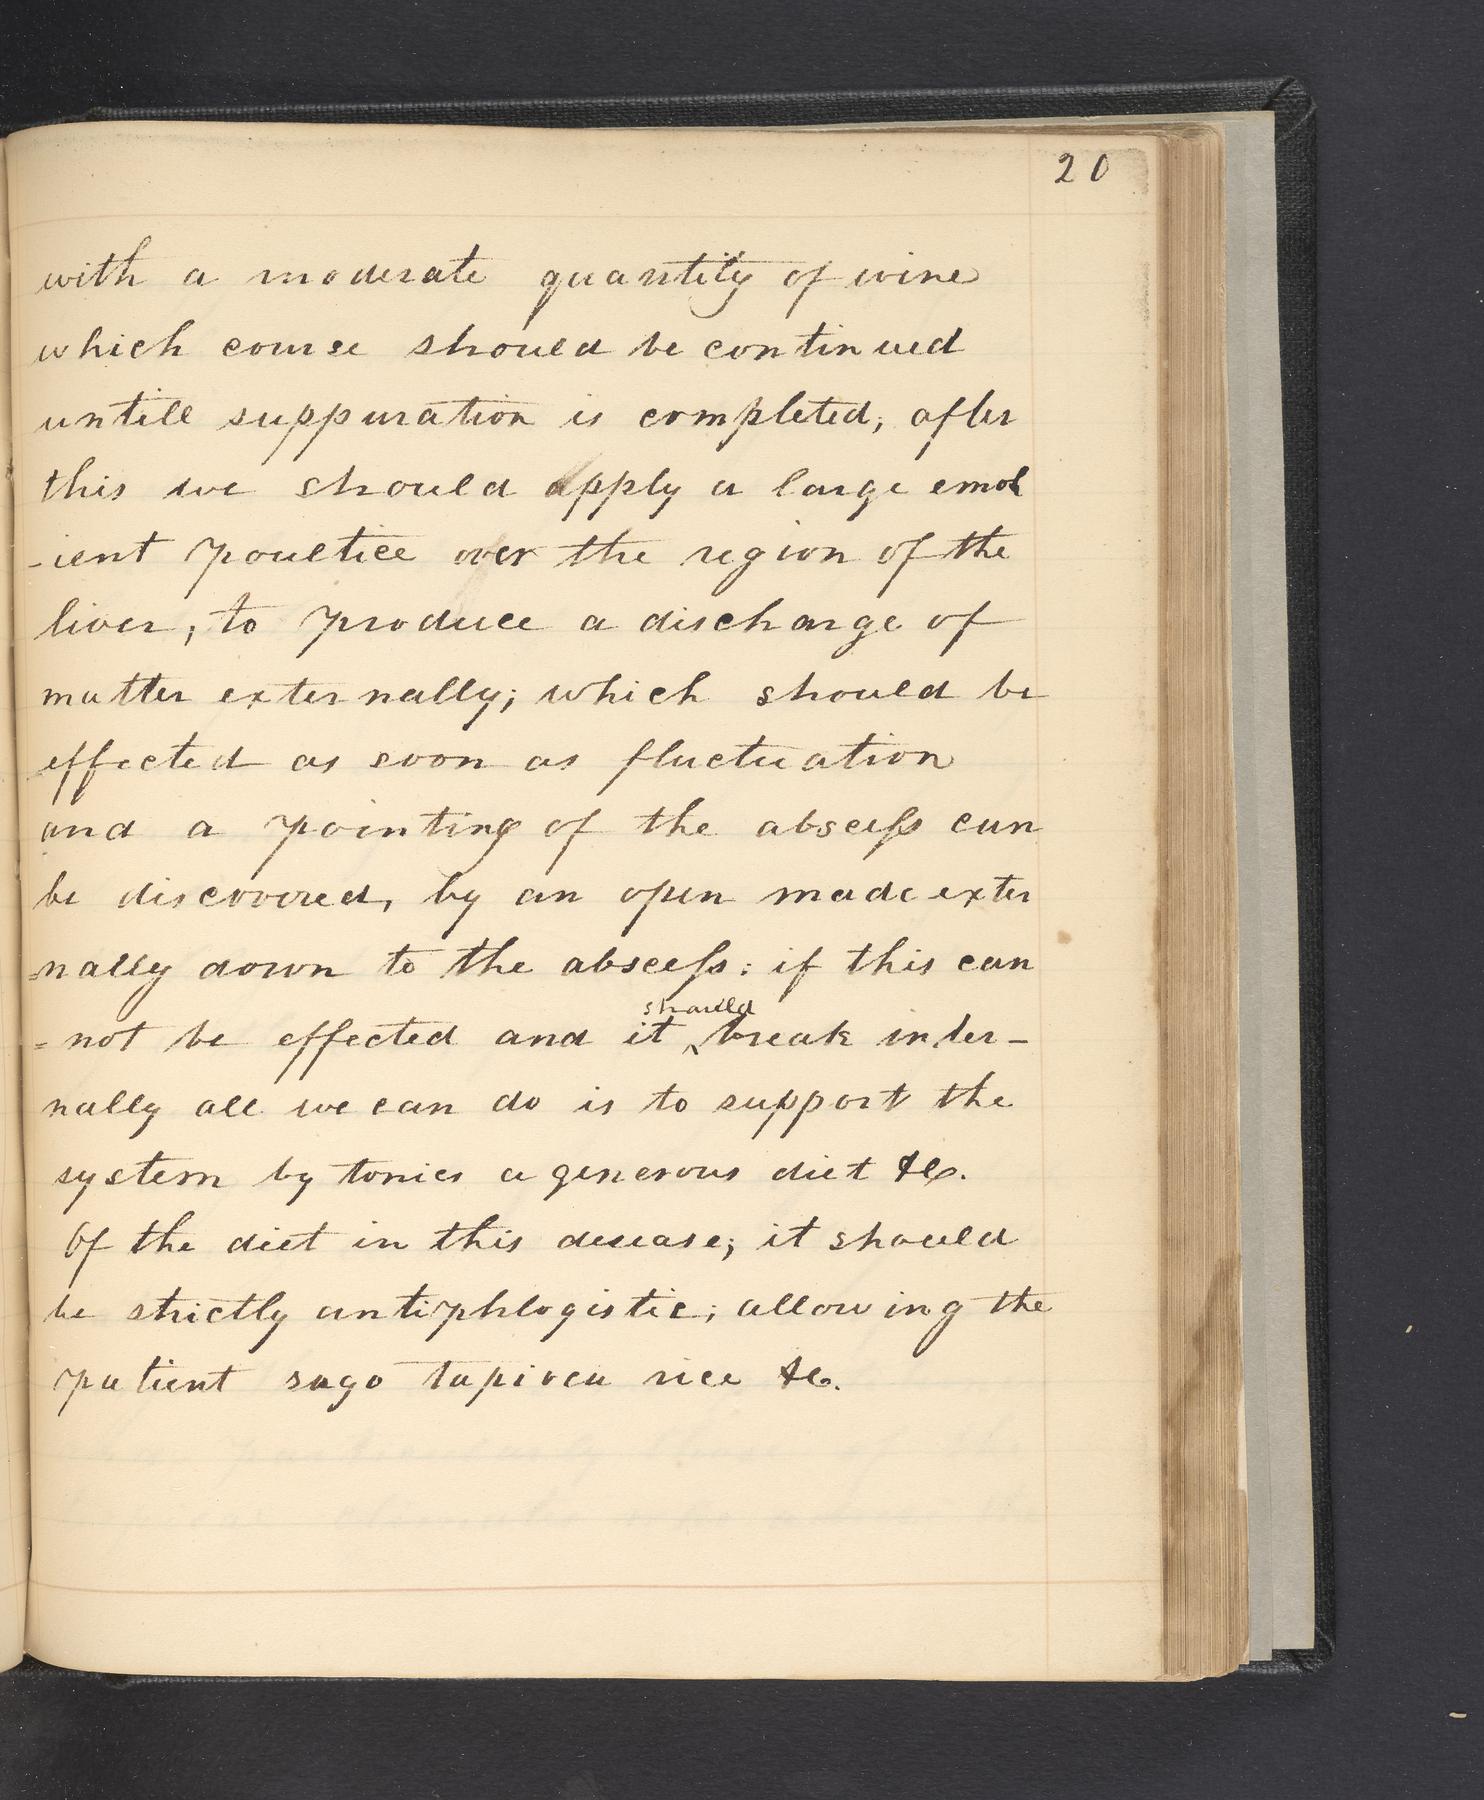 20
with a moderate quantity of wine
which course should be continued
untill suppuration is completed, after
this we should apply a large emol
-ient poultice over the region of the
liver, to produce a discharge of
matter externally; which should be
effected as soon as fluctuation
and a pointing of the abscess can
be discovered, by an open made exter
=nally down to the abscess: if this can
=not be effected and it should break inter-
nally all we can do is to support the
system by tonics a generous diet &c.
Of the diet in this disease; it should
be strictly antiphlogistic; allowing the
patient sago tapioca rice &c.